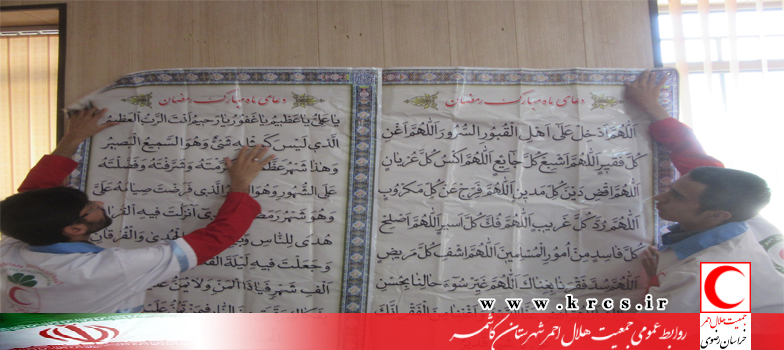 دعای ماه مبارک رمضان
اَللّٰهُمَّ اَدْخِلْ عَلیٰ اَهْلِ الْقُبُورِ السُّرُورَ اَللّٰهُمَّ اَغْنِ
کُلَّ فَقیرٍ اَللّٰهُمَّ اَشْبِعْ کُلَّ جائِعٍ اَللّٰهُمَّ اکْسُ کُلَّ عُرْیانٍ
اَللّٰهُمَّ اقْضِ دَیْنَ کُلِّ مَدینٍ اَللّٰهُمَّ فَرِّجْ عَنْ کُلِّ مَکْرُوبٍ
اَللّٰهُمَّ رُدَّ کُلَّ غَریبٍ اَللّٰهُمَّ فُکَّ کُلَّ اَسیرٍ اَللّٰهُمَّ اَصْلِحْ
کُلَّ فاسِدٍ مِنْ اُمُورِ الْمُسْلِمینَ اَللّٰهُمَّ اشْفِ کُلَّ مَریضٍ
اَللّٰهُمَّ سُدَّ فَقْرَنا بِغِناکَ اَللّٰهُمَّ غَیِّرْ سُوءَ حالِنا بِحُسْنِ
دعای ماه مبارک رمضان
یا عَلِیُّ یا عَظیمُ یا غَفُورُ یا رَحیمُ اَنْتَ الرَّبُّ الْعَظیمُ
الَّذی لَیْسَ کَمِثْلِهِ شَیْءٌ وَهُوَ السَّمیعُ الْبَصیرُ
وَهٰذا شَهْرٌ وَشَرَّفْتَهُ وَفَضَّلْتَهُ
عَلَی الشُّهُورِ وَهُوَ الَّذی فَرَضْتَ صِیامَهُ عَلَیَّ
وَهُوَ شَهْرُ اَنْزَلْتَ فیهِ
هُدیً لِلنّاسِ وَالْفُرْقانِ
وَجَعَلْتَ فیهِ لَیْلَةَ
اَلْفِ شَهْرٍ فَیا ذَا الْمَنِّ وَلا یُمَنُّ
www.krcs.ir
روابط عمومی جمعیت هلال احمر شهرستان کاشمر
جمعیت هلال احمر
خراسان رضوی